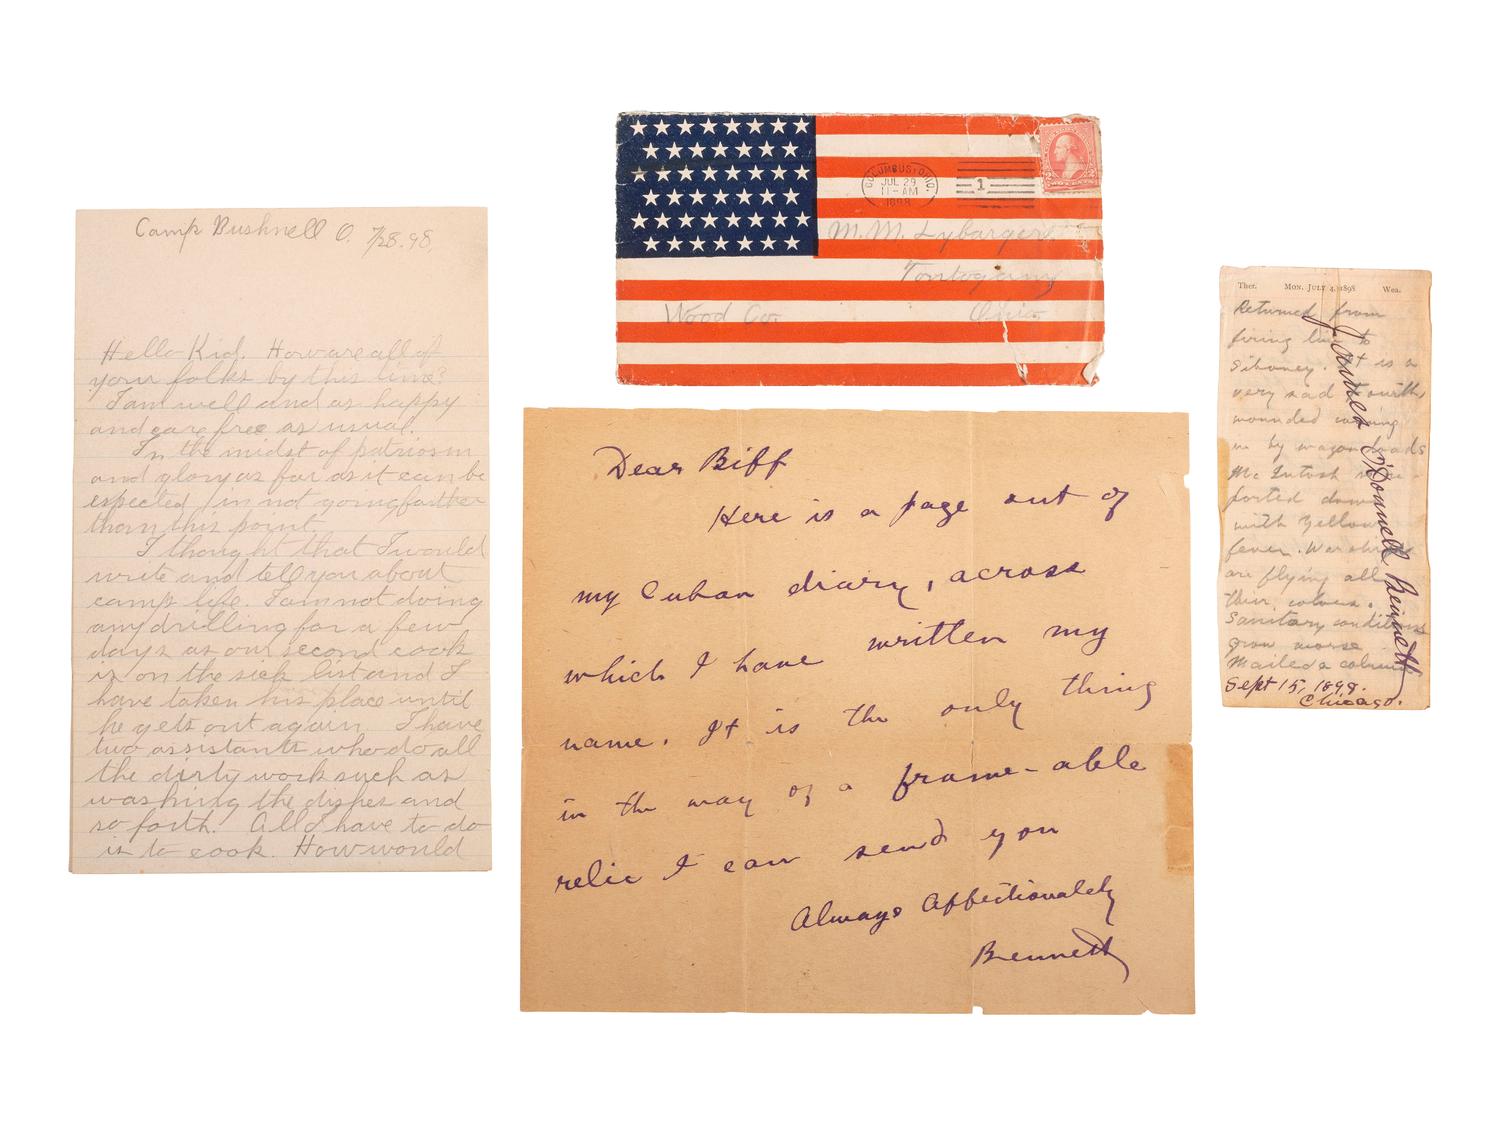 Camp Bushnell O. 7/28.98.
Hello Kid. How are all of
your folks by this time?
I am well and as happy
and care free as usual.
In the midst of patriosm
and glory as far as it can be
expected im not going farther
than this point.
I thought that I would
write and tell you about
camp life. I am not doing
any drilling for a few
days as our second cook
is on the sick list and I
have taken his place until
he gets out again. I have
two assistants who do all
the dirty work such as
washing the dishes and
so forth. All I have to do
is to cook. How would
COLUMBUS, OHIO.
JUL 29
11-AM
1898
1
M. M. Lybarger,
Tontogany
Wood Co. Ohio
Dear Biff
Here is a page out of
my Cuban diary, across
which I have written my
name. It is the only thing
in the way of a frame-able
relic I can send you
Always Affectionately
Bennett
Ther. MON. JULY 4, 1898 Wea.
Returned from
firing line to
Siboney. It is a
very sad fourth
wounded coming
in by wagon loads
McIntosh re-
ported down
with Yellow
fever. War ships
are flying all
their colors.
Sanitary conditions
grow worse
Mailed a column
James O'Donnell Bennett
Sept 15, 1898.
Chicago.